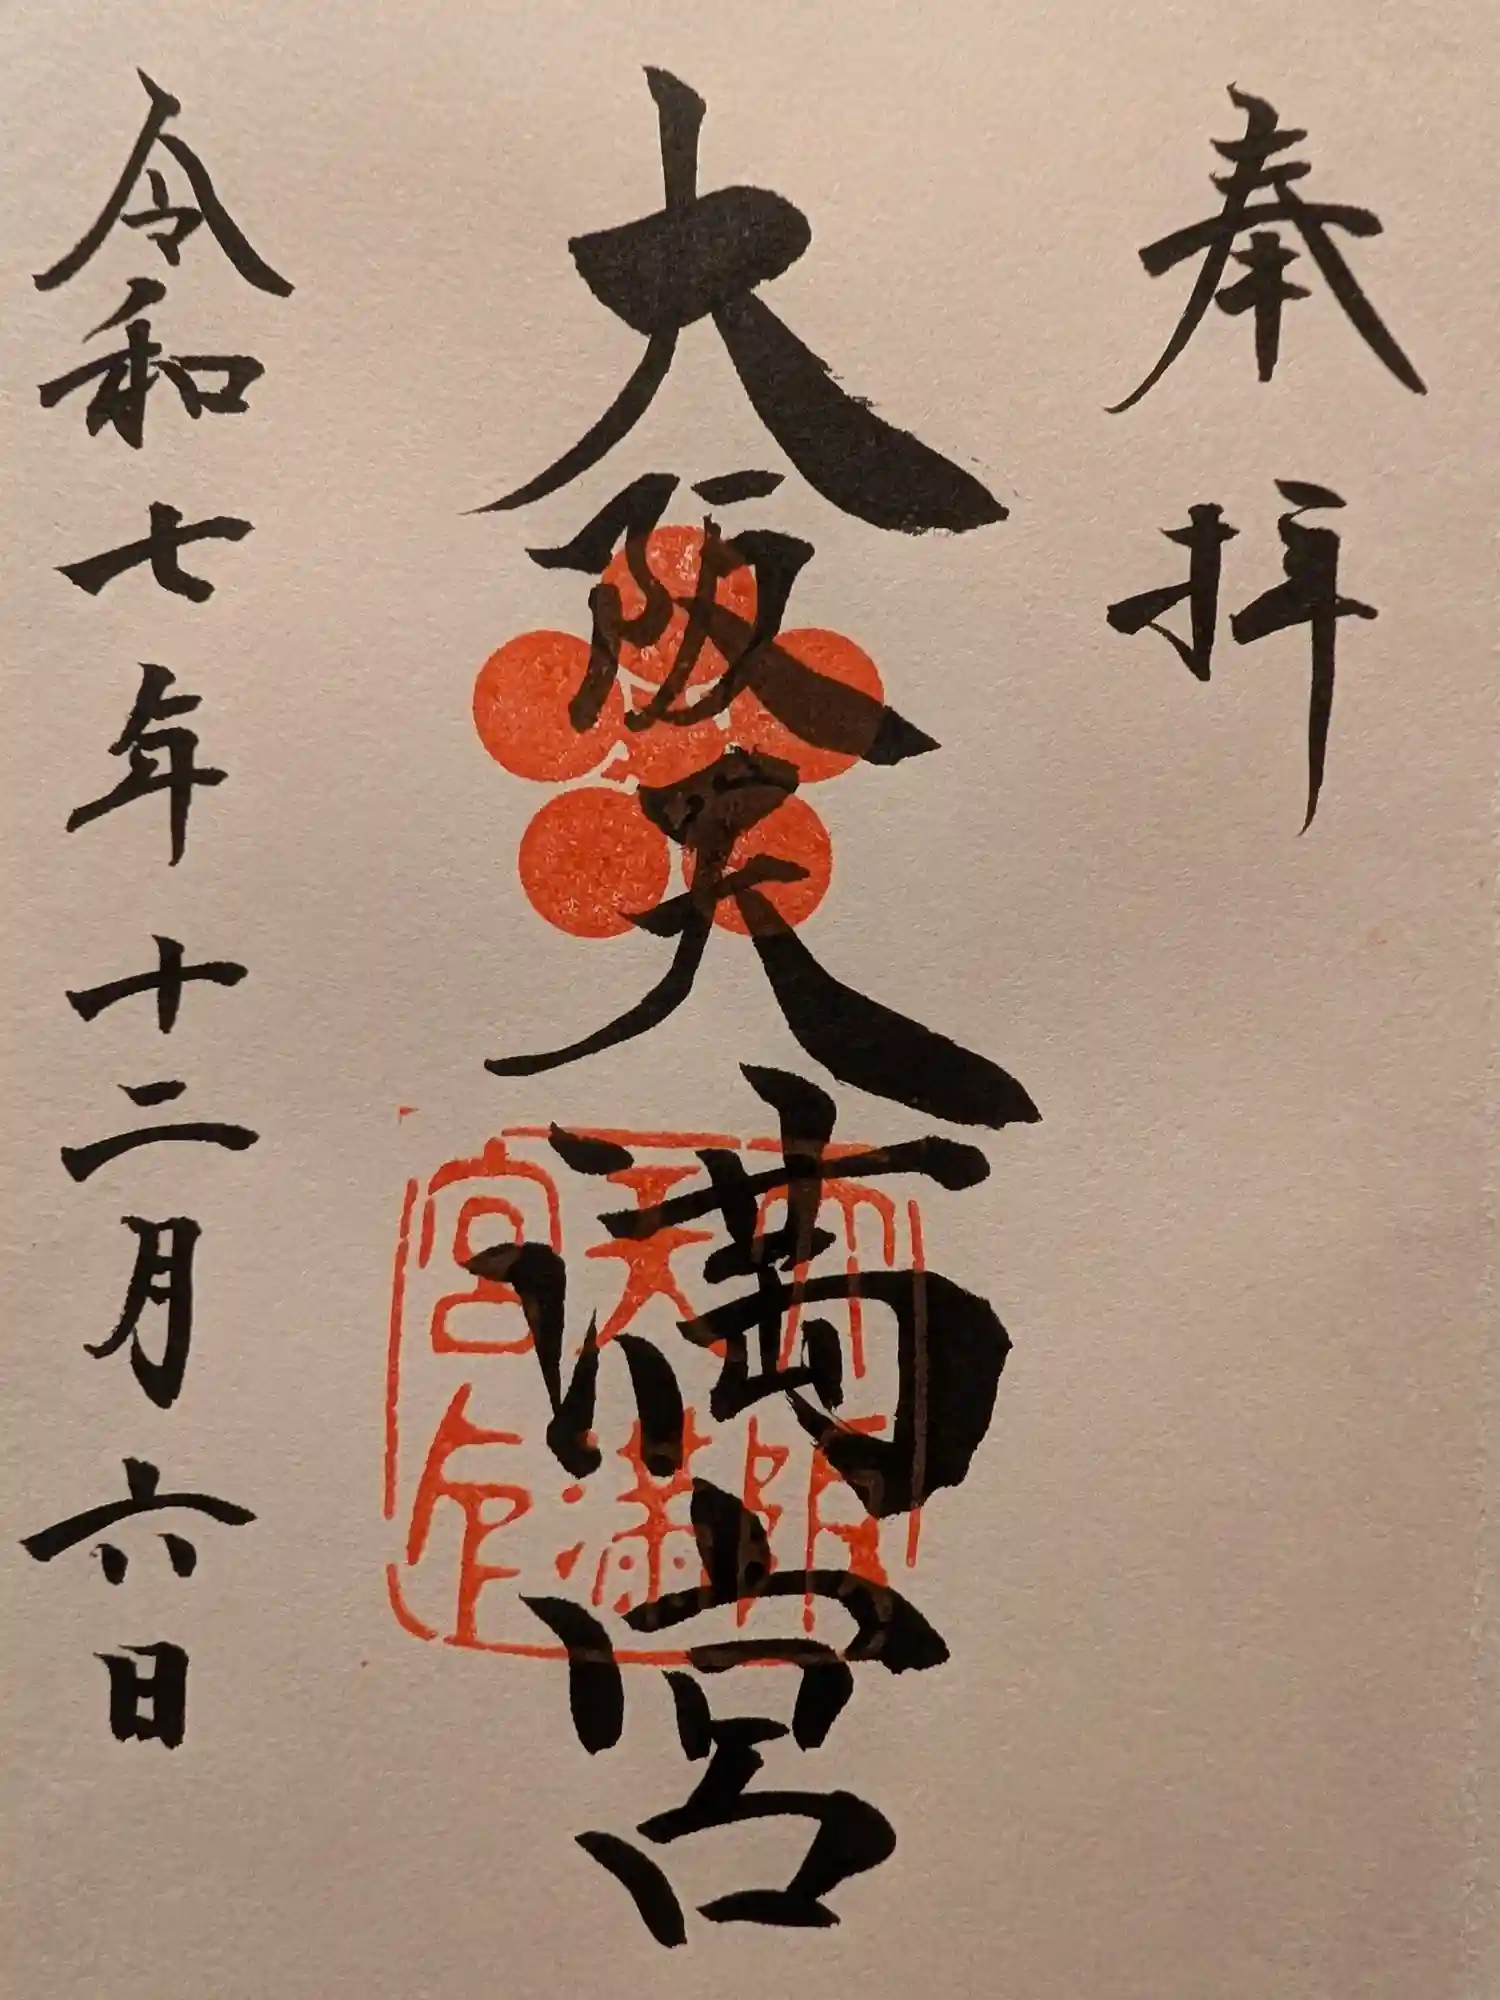 奉拝
大阪天満宮
大阪天満宮印
令和七年十二月六日